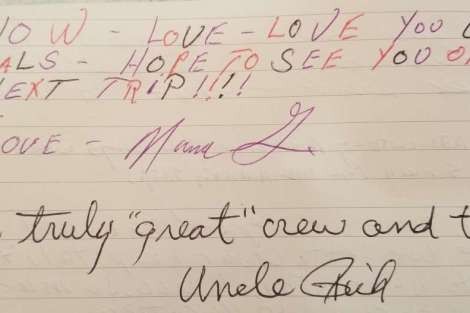 OW - LOVE - LOVE YOU
ALS - HOPE TO SEE YOU O
EXT TRIP!!!!
OVE -
truly "great" crew and t
Uncle